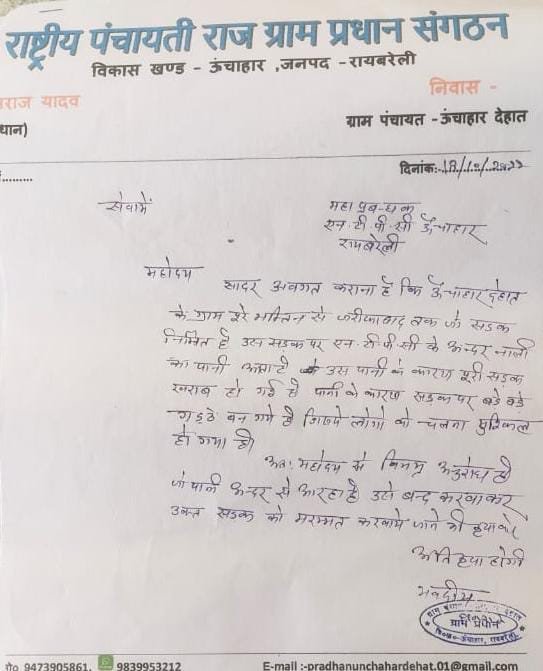 राष्ट्रीय पंचायती राज ग्राम प्रधान संगठन
विकास खण्ड - ऊंचाहार ,जनपद - रायबरेली
राज यादव
निवास -
धान)
ग्राम पंचायत - ऊंचाहार देहात
दिनांक:-18/10/2022
सेवामें
महा प्रबन्धक
एन टी पी सी ऊँचाहार
रायबरेली
महोदय
सादर अवगत कराना है कि ऊँचाहार देहात
के ग्राम पूरे से फरीदाबाद तक जो सडक
निर्मित है उस सडक पर एन.टी.पी.सी के अन्दर नाली
का पानी आता है उस पानी के कारण पूरी सडक
खराब हो गई है पानी के कारण सडक पर बडे बडे
गड्ढे बन गये है जिससे लोगो को चलना मुश्किल
हो गया है।
अतः महोदय से विनम्र अनुरोध है
जो पानी अन्दर से आ रहा है उसे बन्द करवाकर
उक्त सडक को मरम्मत करवाये जाने की कृपा करे
अति कृपा होगी
भवदीय
ग्राम प्रधान
मो0 9473905861, 9839953212
E-mail :-pradhanunchahardehat.01@gmail.com